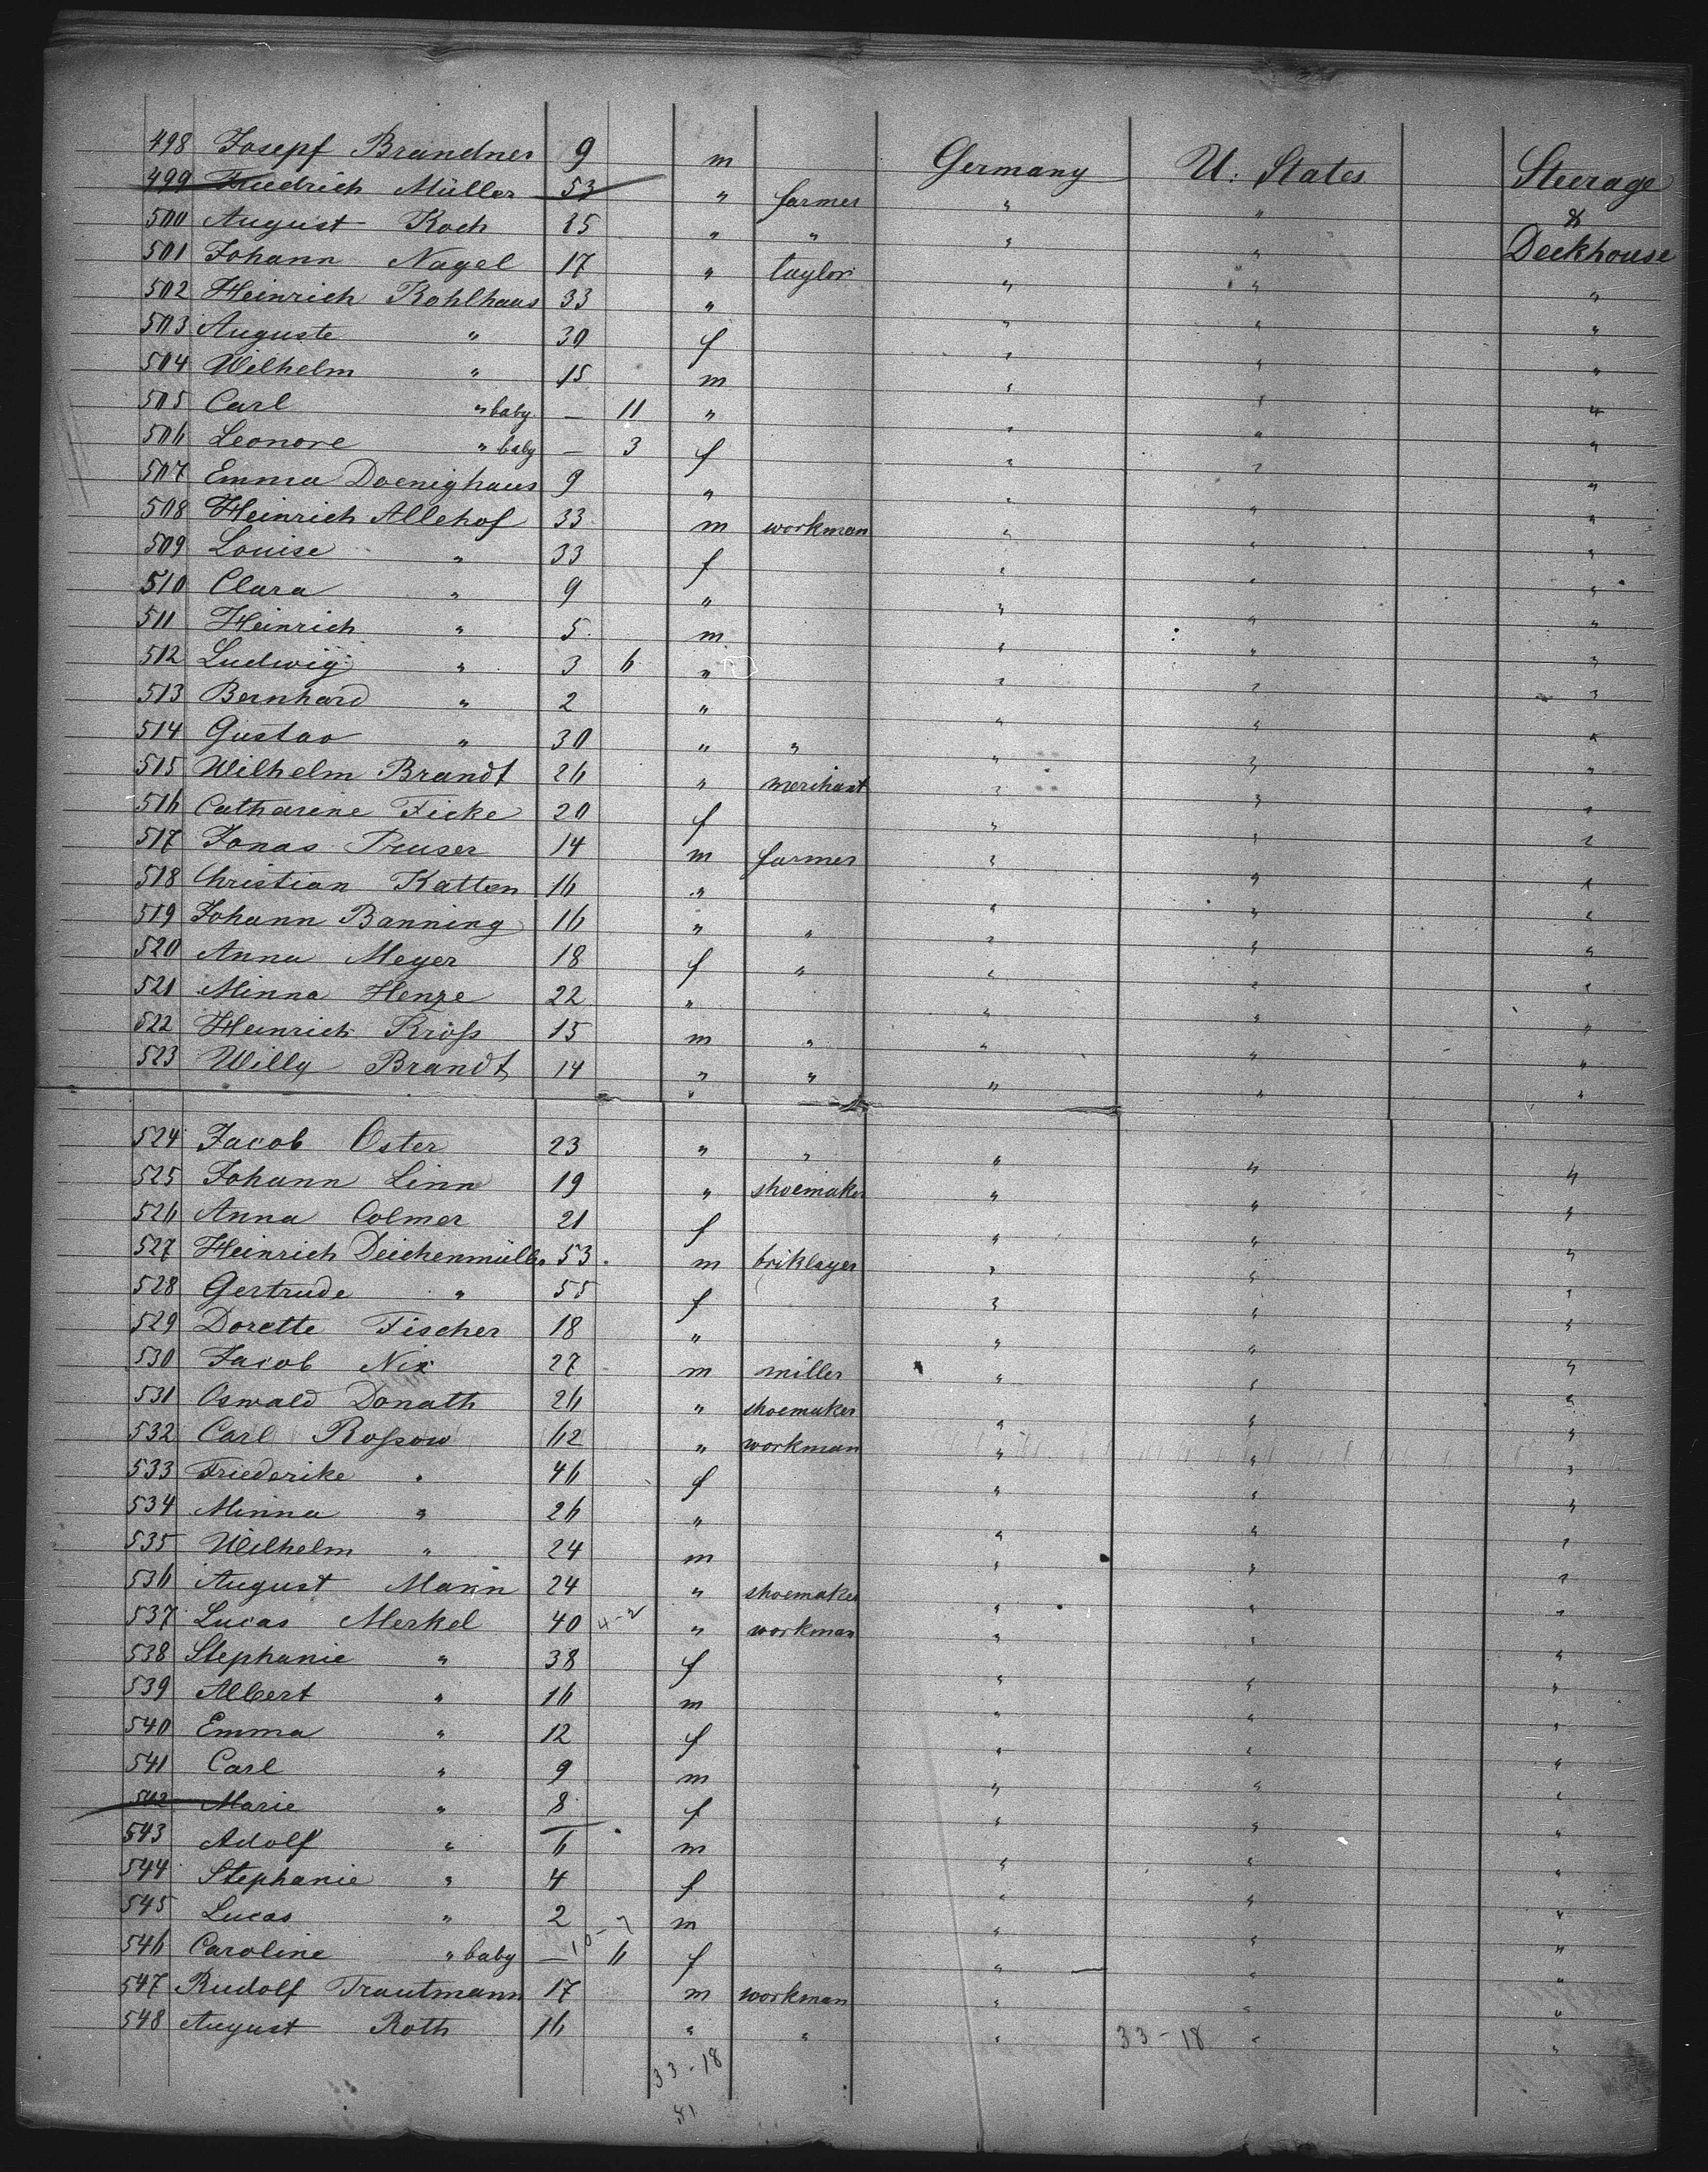 498 Josepf Brandner 9 m Germany U: States Steerage
499 Friedrich Müller 53 " farmer " " &
500 August Koch 25 " " " " Deckhouse
501 Johann Nagel 17 " taylor " " "
502 Heinrich Kohlhaas 33 " " " "
503 Auguste " 30 f " " "
504 Wilhelm " 15 m " " "
505 Carl " baby — 11 " " " "
506 Leonore " baby — 3 f " " "
507 Emma Doenighaus 9 " " " "
508 Heinrich Allehof 33 m workman " " "
509 Louise " 33 f " " "
510 Clara " 9 " " " "
511 Heinrich " 5 m " " "
512 Ludwig " 3 6 " " " "
513 Bernhard " 2 " " " "
514 Gustav " 30 " " " " "
515 Wilhelm Brandt 26 " merchant " " "
516 Catharine Ficke 20 f " " "
517 Jonas Pruser 14 m farmer " " "
518 Christian Katten 16 " " " "
519 Johann Banning 16 " " " " "
520 Anna Meyer 18 f " " " "
521 Minna Henze 22 " " " "
522 Heinrich Kröss 15 m " " " "
523 Willy Brandt 14 " " " " "
524 Jacob Oster 23 " " " " "
525 Johann Linn 19 " shoemaker " " "
526 Anna Colmer 21 f " " "
527 Heinrich Deichenmüller 53 m briklayer " " "
528 Gertrude " 55 f " " "
529 Dorette Fischer 18 " " " "
530 Jacob Nix 27 m miller " " "
531 Oswald Donath 26 " shoemaker " " "
532 Carl Rossow 62 " workman " " "
533 Friederike " 46 f " " "
534 Minna " 26 " " " "
535 Wilhelm " 24 m " " "
536 August Mann 24 " shoemaker " " "
537 Lucas Merkel 40 4-2 " workman " " "
538 Stephanie " 38 f " " "
539 Albert " 16 m " " "
540 Emma " 12 f " " "
541 Carl " 9 m " " "
542 Marie " 8 f " " "
543 Adolf " 6 m " " "
544 Stephanie " 4 f " " "
545 Lucas " 2 m " " "
546 Caroline " baby — 10-7 6 f " " "
547 Rudolf Trautmann 17 m workman " " "
548 August Roth 16 " " " 33-18 " "
33-18
51